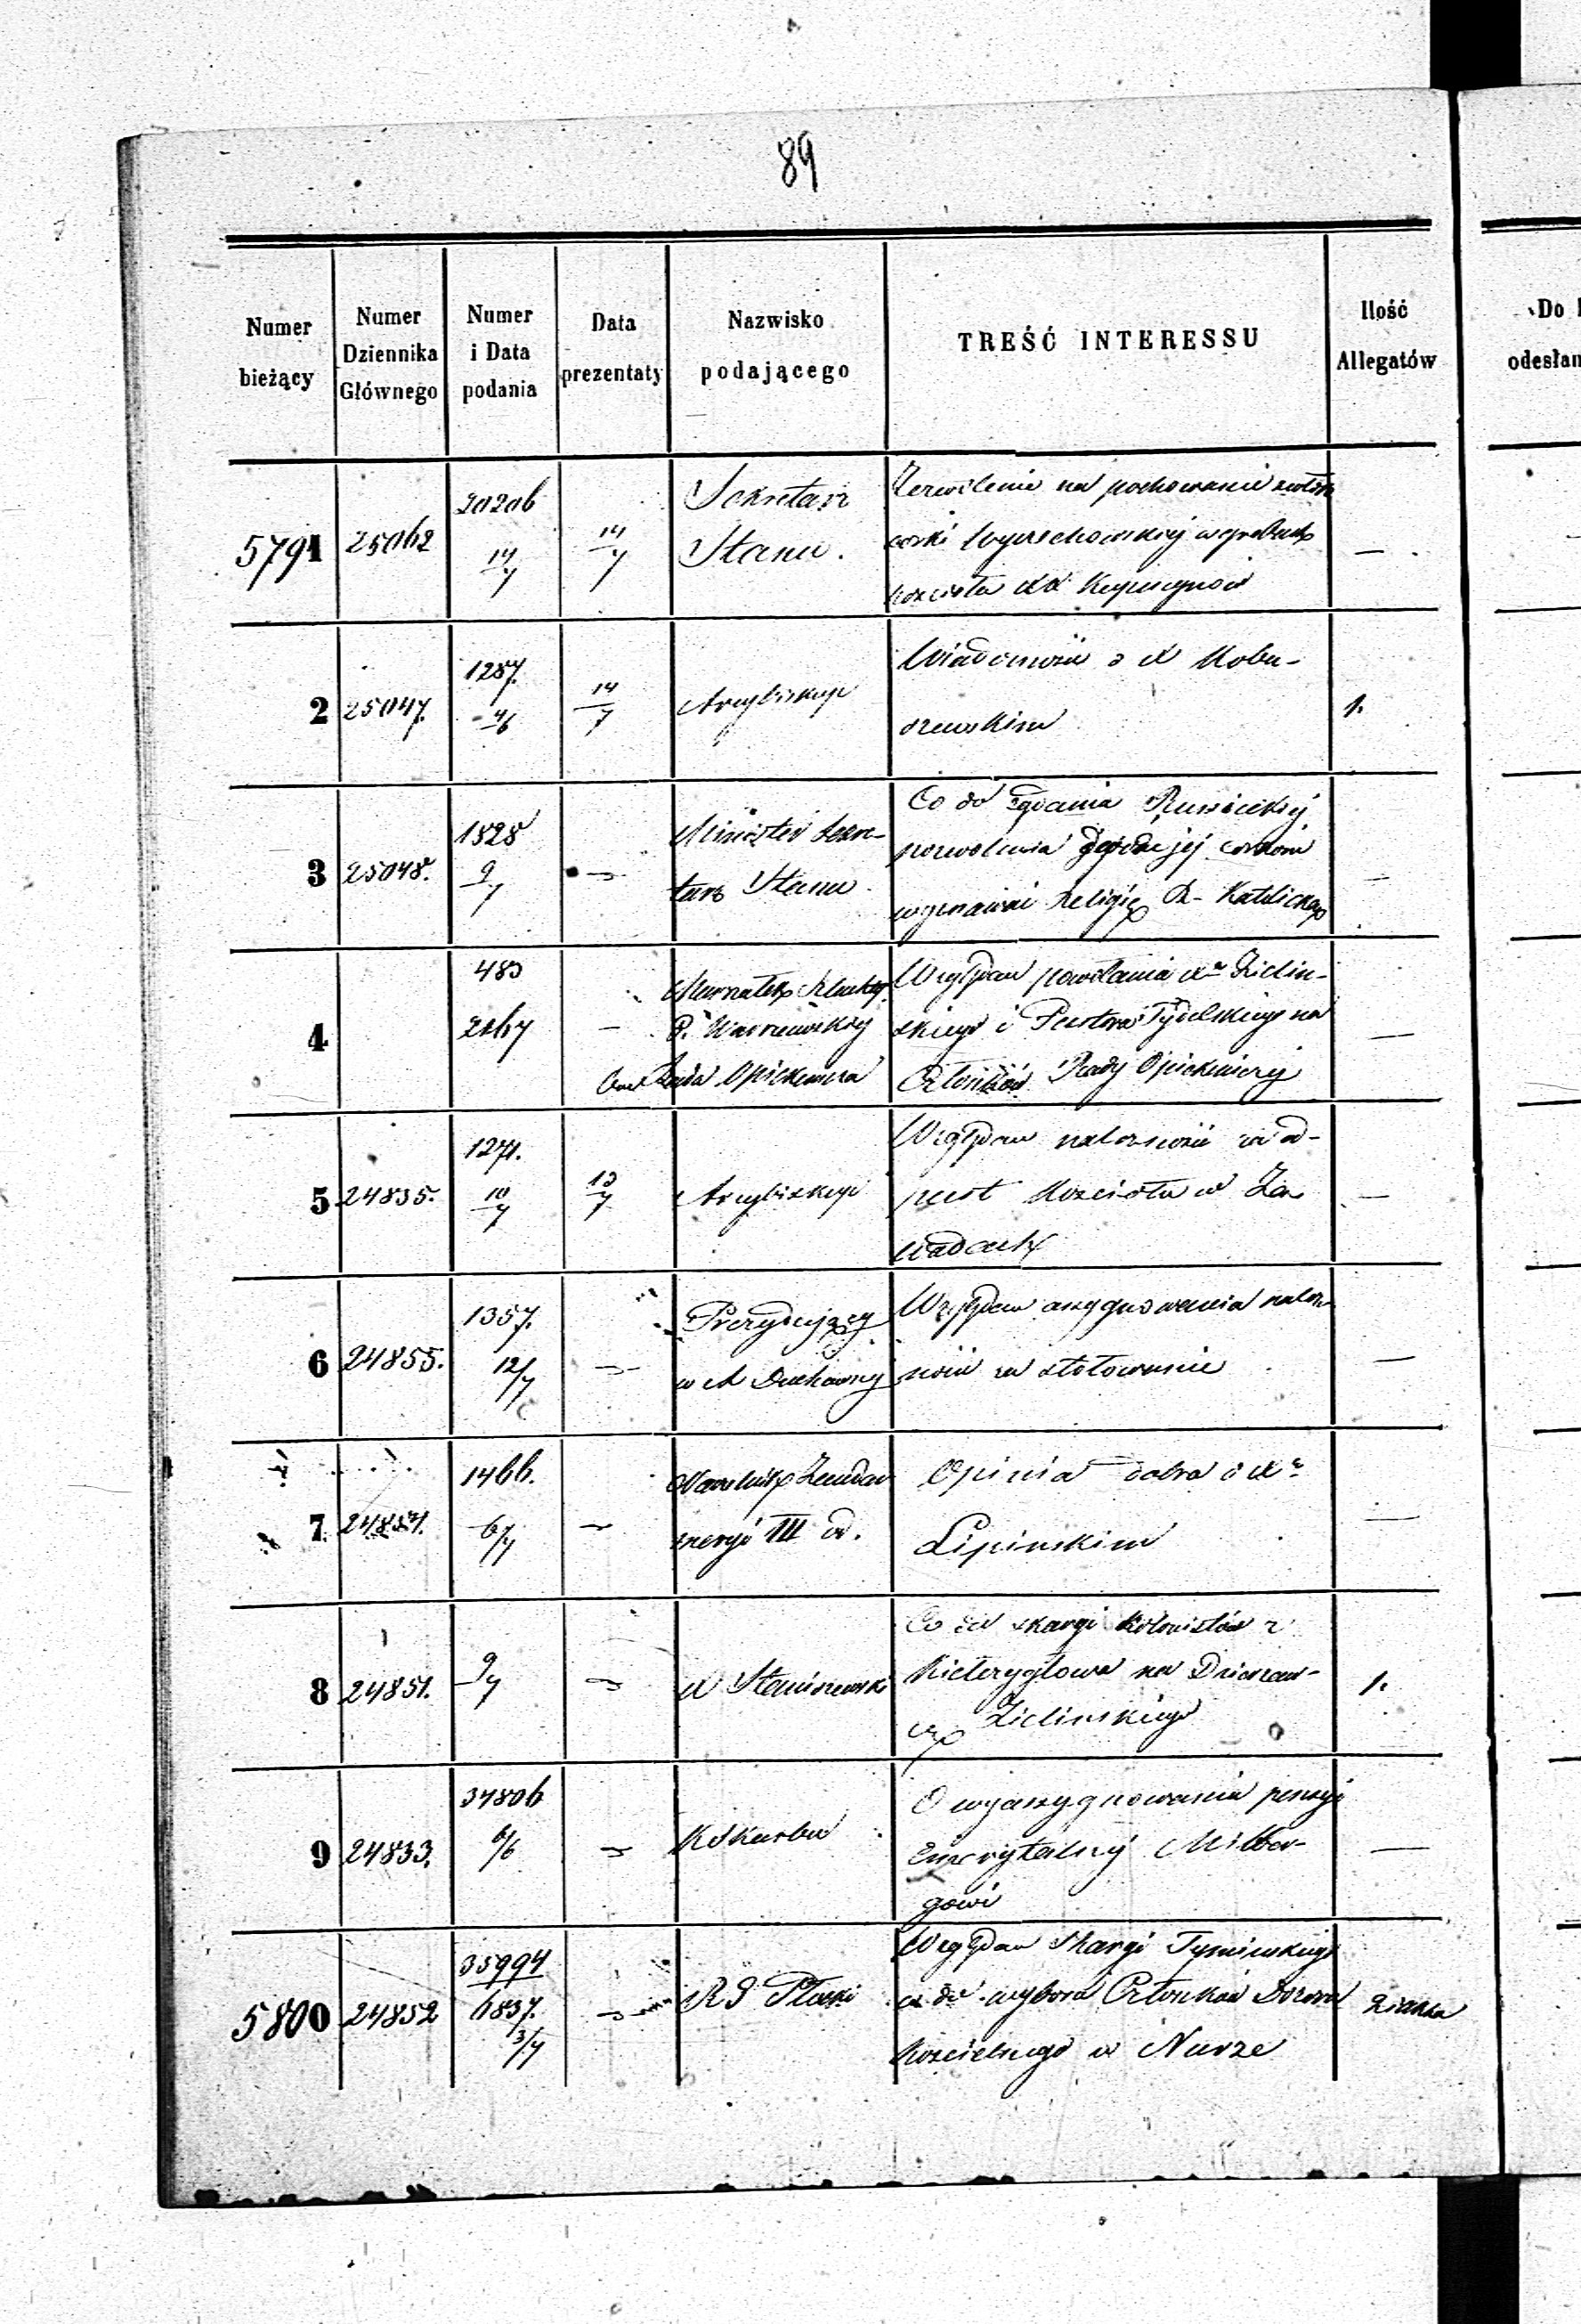 89
Numer bieżący
Numer Dziennika Głównego
Numer i Data podania
Data prezentaty
Nazwisko podającego
TREŚĆ INTERESSU
Ilość Allegatów
Do
odesłan
5791 25062 20206 14/7 14/7 Sekretarz Stanu. Zezwolenie na pochowanie zwłok
corki Wyerzchowskiej w grobach
kościoła XX Kapucynów —
2 25047. 1287. 4/6 14/7 Arcybiskup Wiadomość o X Kobu-
szewskim 1.
3 25048. 1828 9/7 — Minister Sekre-
tarz Stanu Co do żądania Rusieckiej
pozwolenia jej corkom
wyznawać Religię R. Katolicką —
4 483 2267 — Marszałek Szlachty
P. Warszawskiej
Rada Opiekuńcza Względem powołania Xa Zielin-
skiego i Pastora na
Członków Rady Opiekuńczej —
5 24835. 1271. 10/7 13/7 Arcybiskup Względem należności za od-
pust Kościoła w Za
wadach —
6 24855. 1357. 12/7 — Prezydujący
w A Duchownej Względem assygnowania należ
ności za stołowanie —
7 24854. 1466. 6/7 — Naczelnik Żandar
meryi III o. Opinia dobra o Xu
Lipinskim —
8 24851. 9/7 — X Staniszewski Co do skargi kolonistów z
Kiełczygłowa na Dzierzaw-
cę Zielinskiego 1.
9 24833. 34806 6/6 — K Skarbu O wyassygnowania pensyi
Emerytalnej Milber-
gowi —
5800 24852 35994 6837. 3/7 — R G Płocki Względem Skargi Tyminskiego
co do wyboru Członków Dozoru
Kościelnego w Nurze